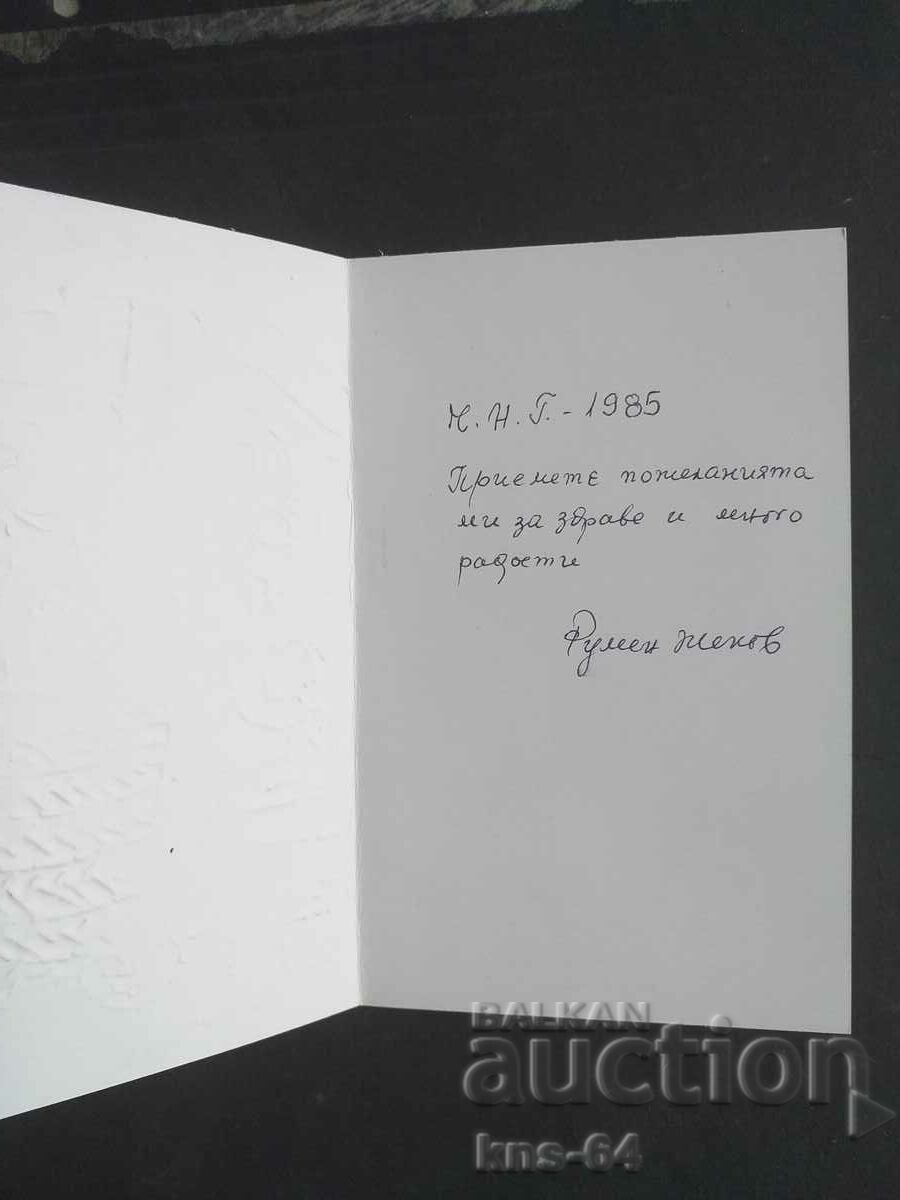 Ч.Н.Г. - 1985
Приемете пожеланията
ми за здраве и много
радости
Румен Жеков
BALKAN
auction
kns-64